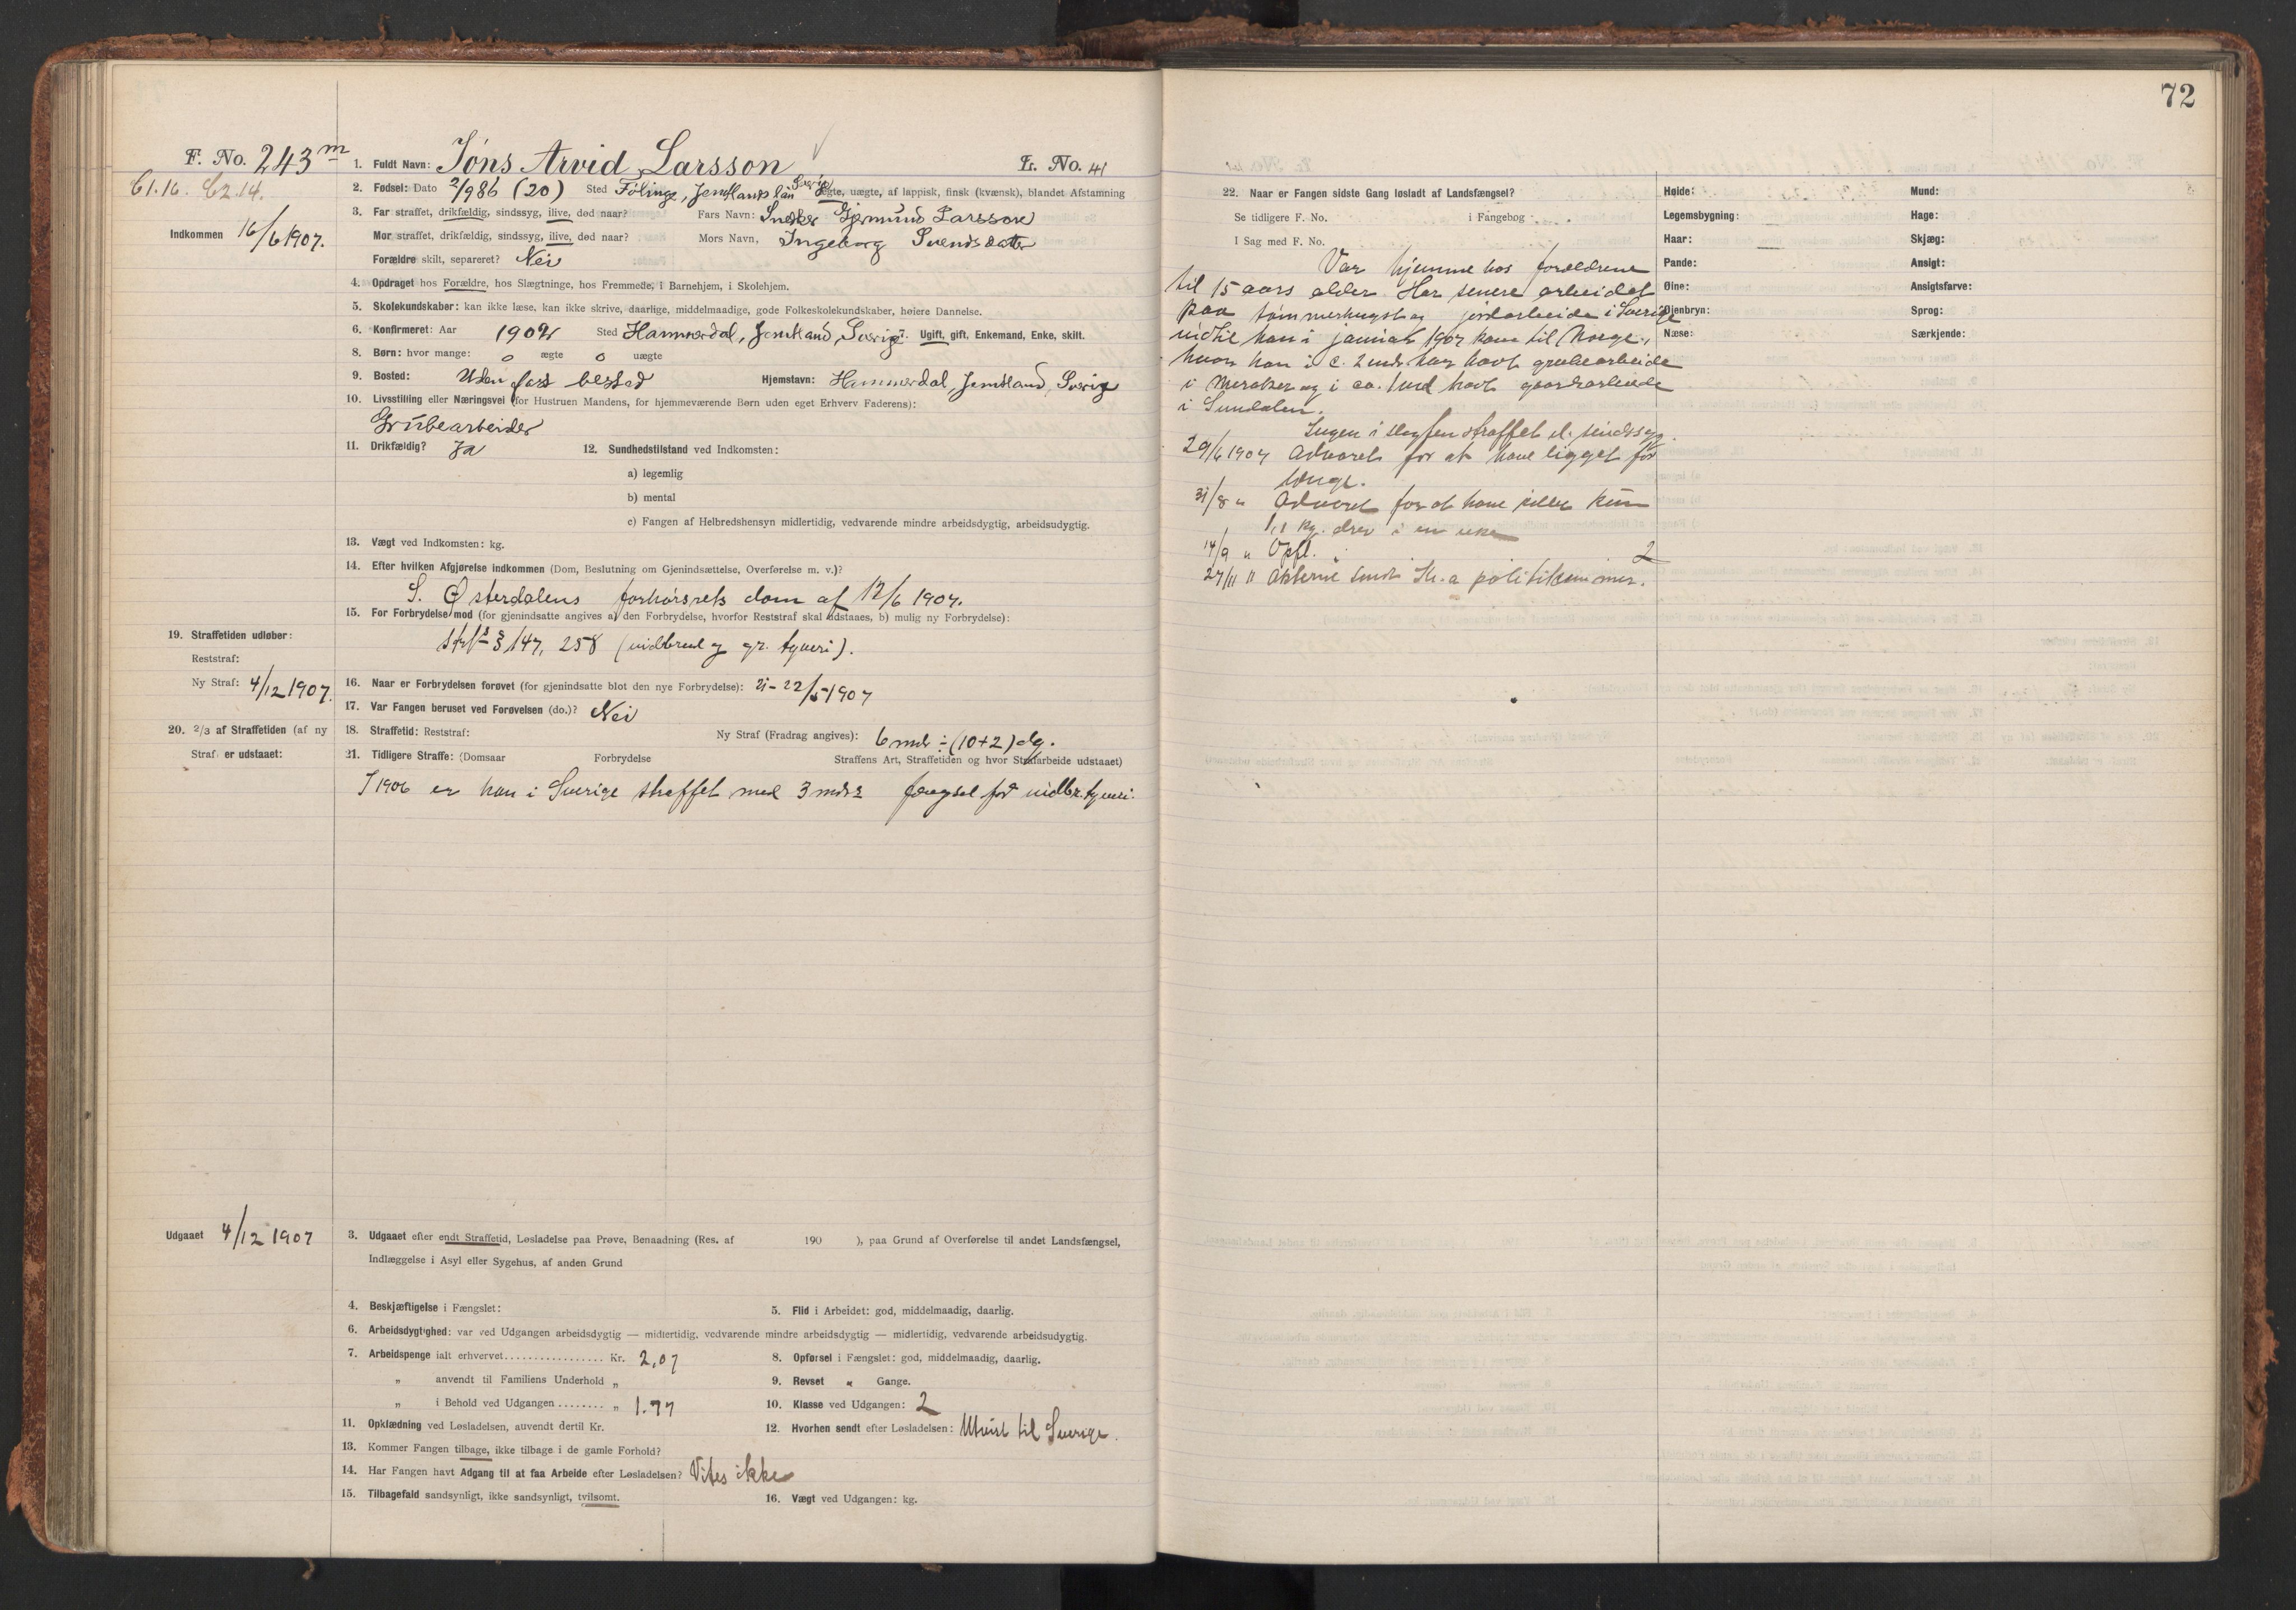 72
F. No. 243 m
61.16. 62.14.
Indkommen 16/6 1907.
1. Fuldt Navn: Jöns Arvid Larsson
Lr. No. 41
2. Fødsel: Dato 2/9 86 (20) Sted Fölinge, Jemtlands län Sverige ægte, uægte, af lappisk, finsk (kvænsk), blandet Afstamning
3. Far straffet, drikfældig, sindssyg, ilive, død naar? Fars Navn: Snedker Gjermund Larsson
Mor straffet, drikfældig, sindssyg, ilive, død naar? Mors Navn, Ingeborg Svendsdatter
Forældre skilt, separeret? Nei
4. Opdraget hos Forældre, hos Slægtninge, hos Fremmede, i Barnehjem, i Skolehjem.
5. Skolekundskaber: kan ikke læse, kan ikke skrive, daarlige, middelmaadige, gode Folkeskolekundskaber, høiere Dannelse.
6. Konfirmeret: Aar 1902 Sted Hammerdal, Jemtland, Sverige 7. Ugift, gift, Enkemand, Enke, skilt.
8. Børn: hvor mange: 0 ægte 0 uægte
9. Bosted: Uden fast bested Hjemstavn: Hammerdal, Jemtland, Sverige
10. Livsstilling eller Næringsvei (for Hustruen Mandens, for hjemmeværende Børn uden eget Erhverv Faderens):
Grubearbeider
11. Drikfældig? Ja 12. Sundhedstilstand ved Indkomsten:
a) legemlig
b) mental
c) Fangen af Helbredshensyn midlertidig, vedvarende mindre arbeidsdygtig, arbeidsudygtig.
13. Vægt ved Indkomsten: kg.
14. Efter hvilken Afgjørelse indkommen (Dom, Beslutning om Gjenindsættelse, Overførelse m. v.)?
S. Østerdalens forhørsrets dom af 12/6 1907.
15. For Forbrydelse mod (for gjenindsatte angives a) den Forbrydelse, hvorfor Reststraf skal udstaaes, b) mulig ny Forbrydelse):
§ 147, 258 (indbrud og gr. tyveri).
19. Straffetiden udløber:
Reststraf:
Ny Straf: 4/12 1907.
16. Naar er Forbrydelsen forøvet (for gjenindsatte blot den nye Forbrydelse): 21-22/5 1907
17. Var Fangen beruset ved Forøvelsen (do.)? Nei
20. 2/3 af Straffetiden (af ny
Straf) er udstaaet:
18. Straffetid: Reststraf: Ny Straf (Fradrag angives): 6 mdr ÷ (10+2) dg.
21. Tidligere Straffe: (Domsaar Forbrydelse Straffens Art, Straffetiden og hvor Strafarbeide udstaaet)
I 1906 er han i Sverige straffet med 3 mdrs fængsel for indbr. tyveri.
Udgaaet 4/12 1907
3. Udgaaet efter endt Straffetid, Løsladelse paa Prøve, Benaadning (Res. af 190 ), paa Grund af Overførelse til andet Landsfængsel,
Indlæggelse i Asyl eller Sygehus, af anden Grund
4. Beskjæftigelse i Fængslet: 5. Flid i Arbeidet: god, middelmaadig, daarlig.
6. Arbeidsdygtighed: var ved Udgangen arbeidsdygtig — midlertidig, vedvarende mindre arbeidsdygtig — midlertidig, vedvarende arbeidsudygtig.
7. Arbeidspenge ialt erhvervet................. Kr. 2,07 8. Opførsel i Fængslet: god, middelmaadig, daarlig.
„ anvendt til Familiens Underhold „ 9. Revset „ Gange.
„ i Behold ved Udgangen ........ „ 1.77 10. Klasse ved Udgangen: 2
11. Opklædning ved Løsladelsen, anvendt dertil Kr. 12. Hvorhen sendt efter Løsladelsen: Utvist til Sverige.
13. Kommer Fangen tilbage, ikke tilbage i de gamle Forhold?
14. Har Fangen havt Adgang til at faa Arbeide efter Løsladelsen? Vites ikke
15. Tilbagefald sandsynligt, ikke sandsynligt, tvilsomt. 16. Vægt ved Udgangen: kg.
22. Naar er Fangen sidste Gang løsladt af Landsfængsel?
Se tidligere F. No. i Fangebog
I Sag med F. No.
Var hjemme hos forældrene
til 15 aars alder. Har senere arbeidet
paa tømmerhugst og jordarbeide i Sverige
indtil han i januar 1907 kom til Norge,
hvor han i c. 2 mdr. har havt grubearbeide
i Meraker og i ca. 1 md havt gaardsarbeide
i Sundalen.
Ingen i slegten straffet el. sindssyg.
29/6 1907 Advaret for at have ligget for
længe.
31/8 " Advaret for at have pillet kun
1,1 kg. drev i en uke
14/9 " Opfl. 2
27/11 " Akterne sendt Kr.a politikammer.
Høide:
Legemsbygning:
Haar:
Pande:
Øine:
Øienbryn:
Næse:
Mund:
Hage:
Skjæg:
Ansigt:
Ansigtsfarve:
Sprog:
Særkjende: